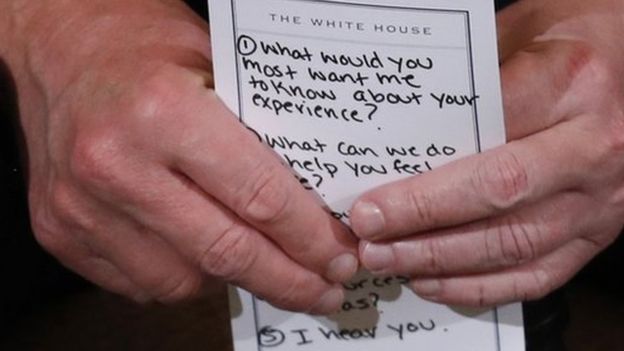 THE WHITE HOUSE
① What would you
most want me
to know about your
experience?
What can we do
help you feel
?
?
⑤ I hear you.